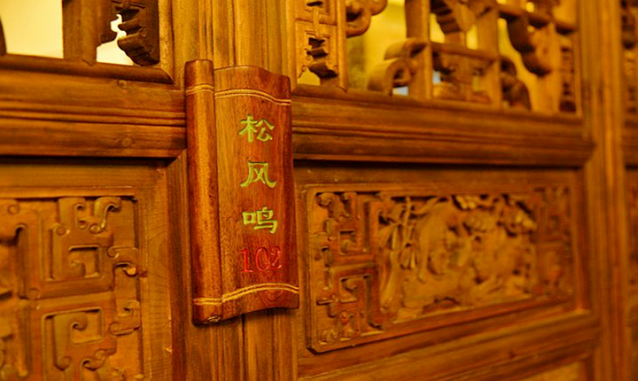 松
风
鸣
102